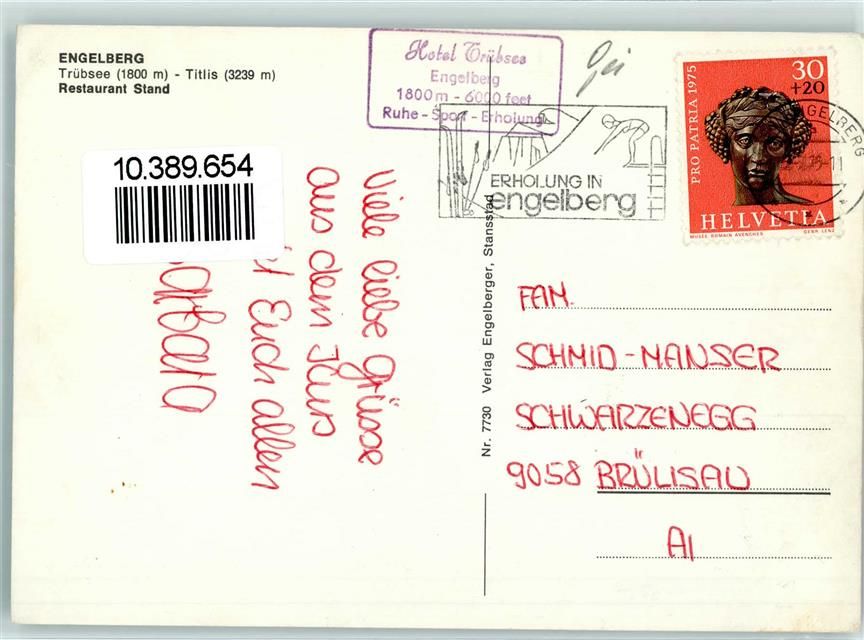 ENGELBERG
Trübsee (1800 m) - Titlis (3239 m)
Restaurant Stand
Hotel Trübsee
Engelberg
1800 m - 6000 feet
Ruhe - Sport - Erholung
ERHOLUNG IN
engelberg
ENGELBERG
PRO PATRIA 1975
30
+20
HELVETIA
MUSÉE ROMAIN AVENCHES
GEBR LENZ
10.389.654
Viele liebe Grüsse
aus dem Kurs
Euch allen
Barbara
Nr. 7730 Verlag Engelberger, Stansstad
FAM.
SCHMID-MANSER
SCHWARZENEGG
9058 BRÜLISAU
AI